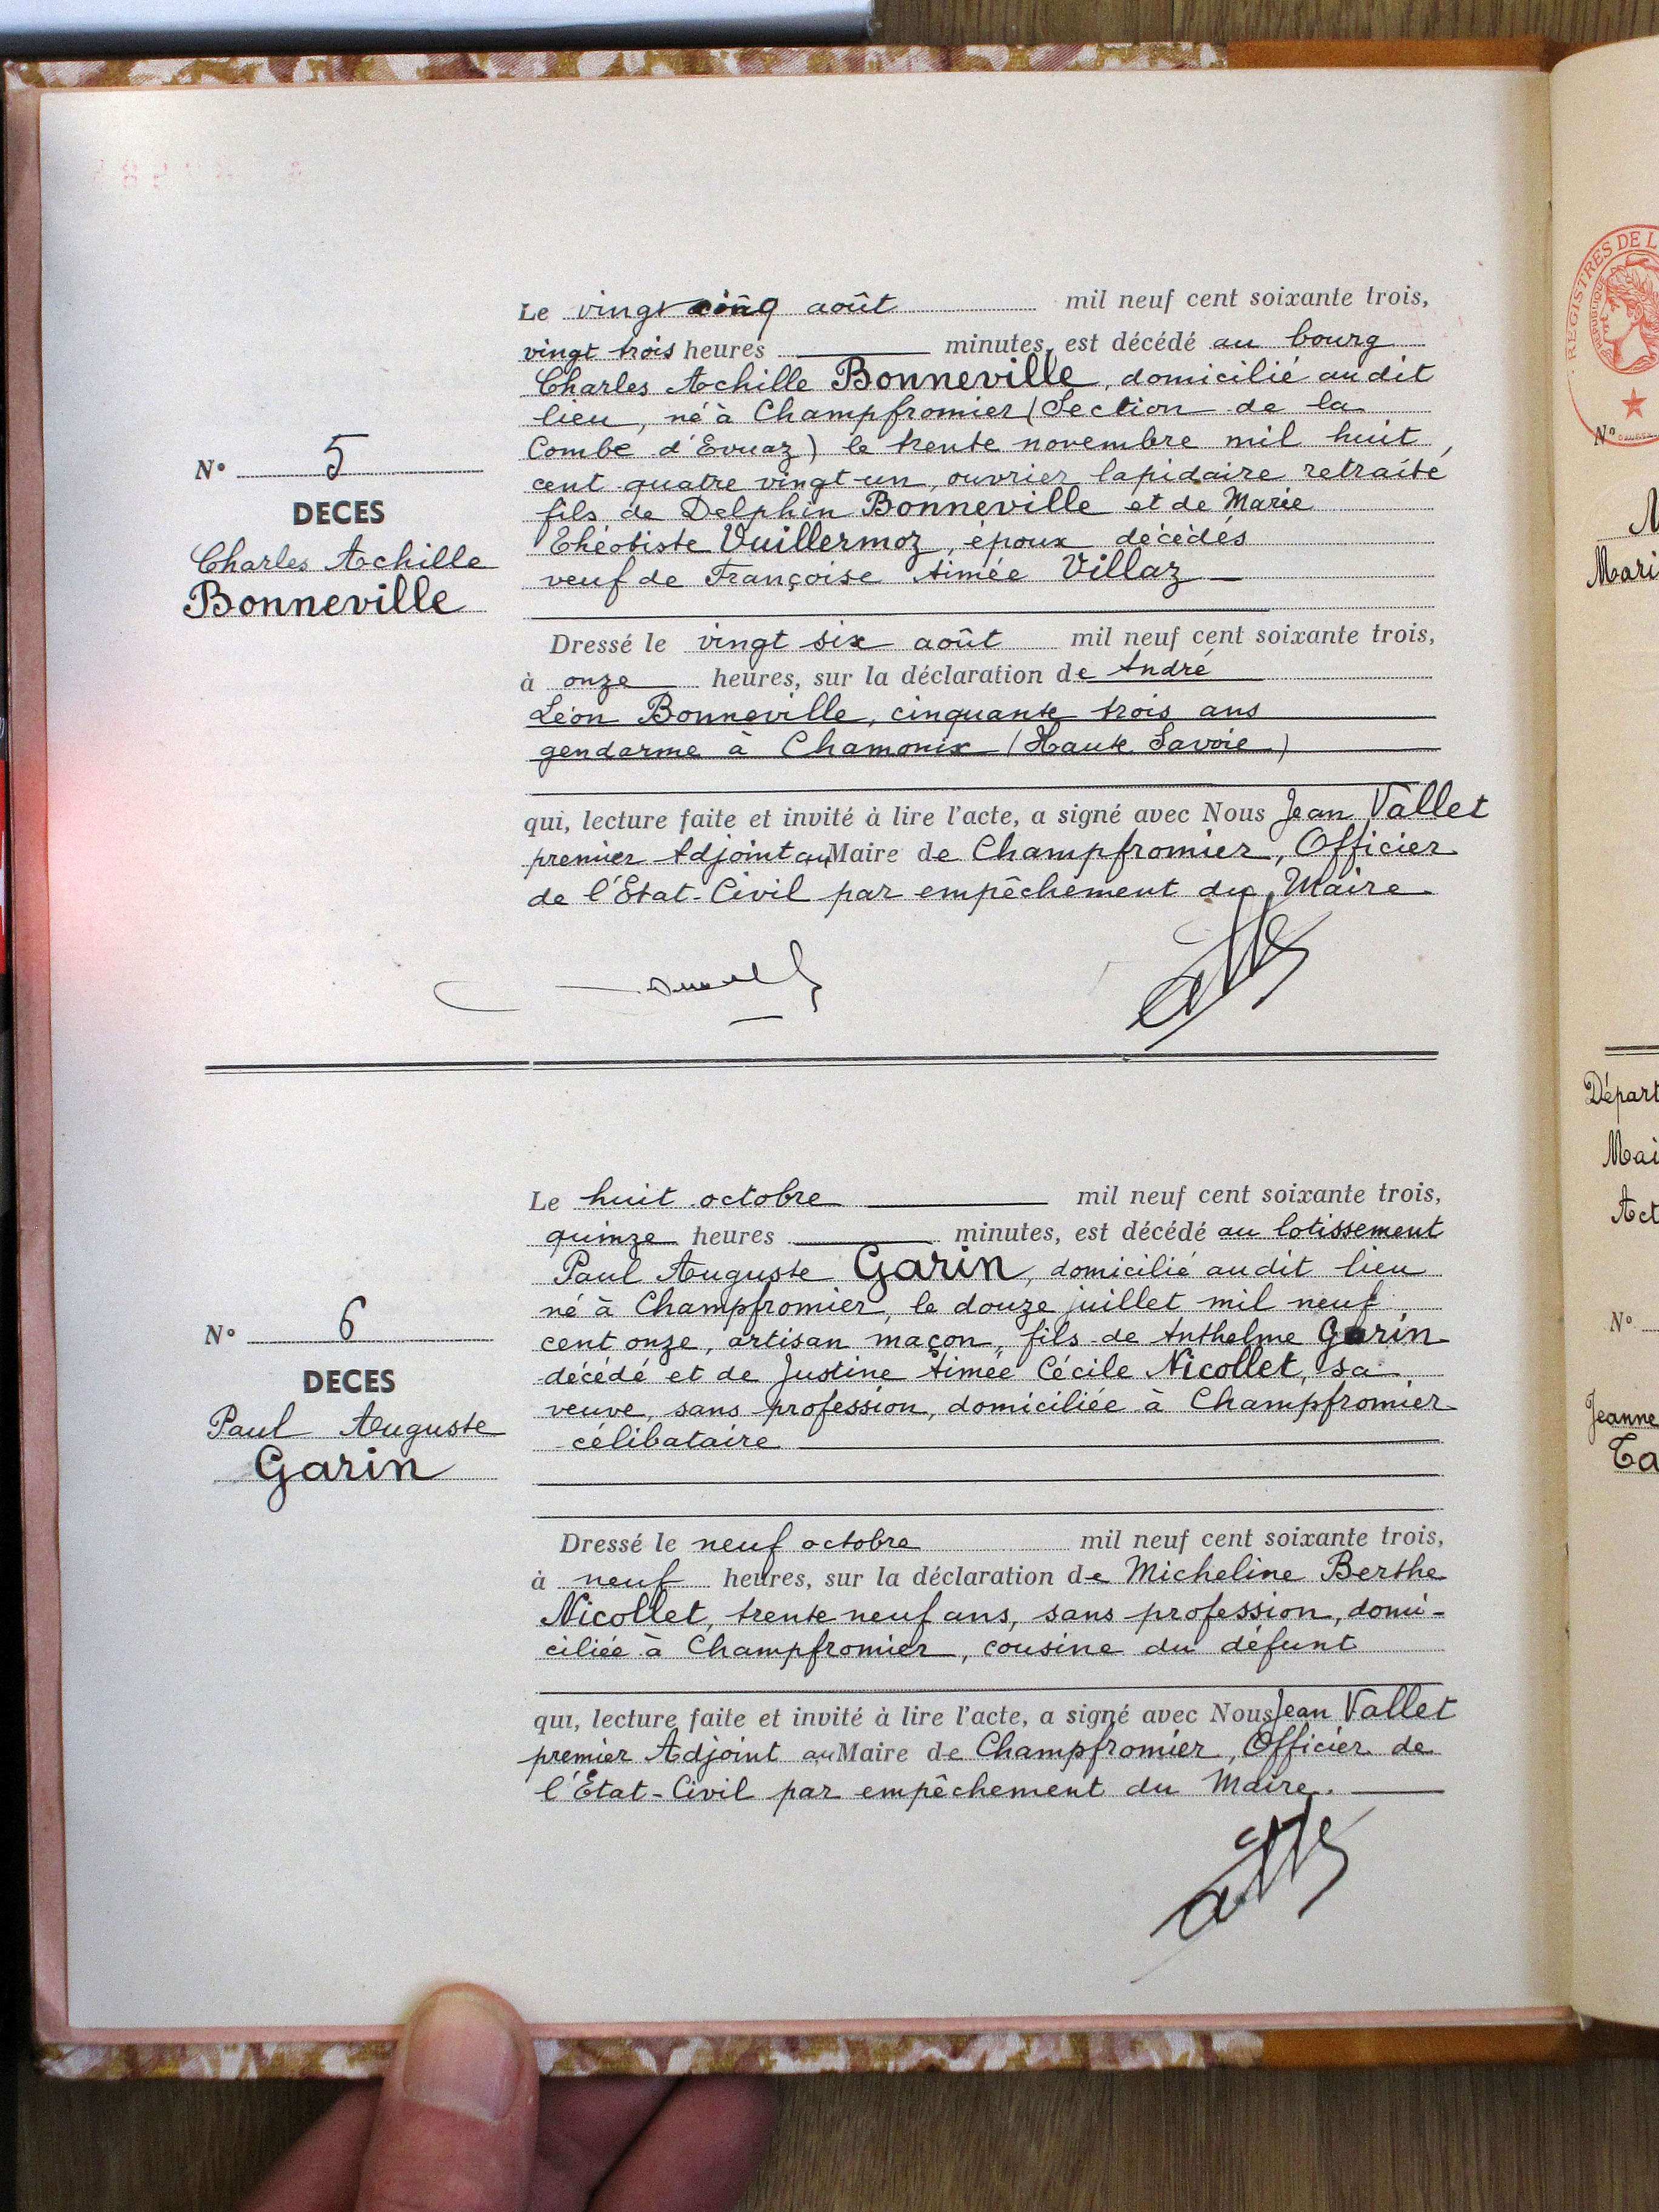 Le vingt cinq août mil neuf cent soixante trois,
vingt trois heures minutes, est décédé au bourg
Charles Achille Bonneville, domicilié audit
lieu, né à Champfromier (Section de la
Combe d'Evuaz) le trente novembre mil huit
cent quatre vingt-un, ouvrier lapidaire retraité,
fils de Delphin Bonneville et de Marie
Théotiste Vuillermoz, époux décédés
veuf de Françoise Aimée Villaz
N° 5
DECES
Charles Achille
Bonneville
Dressé le vingt six août mil neuf cent soixante trois,
à onze heures, sur la déclaration de André
Léon Bonneville, cinquante trois ans
gendarme à Chamonix (Haute Savoie)
qui, lecture faite et invité à lire l'acte, a signé avec Nous Jean Vallet
premier Adjoint au Maire de Champfromier, Officier
de l'Etat-Civil par empêchement du Maire
Le huit octobre mil neuf cent soixante trois,
quinze heures minutes, est décédé au lotissement
Paul Auguste Garin, domicilié audit lieu
né à Champfromier, le douze juillet mil neuf
cent onze, artisan maçon, fils de Anthelme Garin
décédé et de Justine Aimée Cécile Nicollet, sa
veuve, sans profession, domiciliée à Champfromier
célibataire
N° 6
DECES
Paul Auguste
Garin
Dressé le neuf octobre mil neuf cent soixante trois,
à neuf heures, sur la déclaration de Micheline Berthe
Nicollet, trente neuf ans, sans profession, domi-
ciliée à Champfromier, cousine du défunt
qui, lecture faite et invité à lire l'acte, a signé avec Nous Jean Vallet
premier Adjoint au Maire de Champfromier, Officier de
l'Etat-Civil par empêchement du Maire.
REGISTRES DE L
N°
Mari
Départ
Mai
Act
N°
Jeanne
Ta